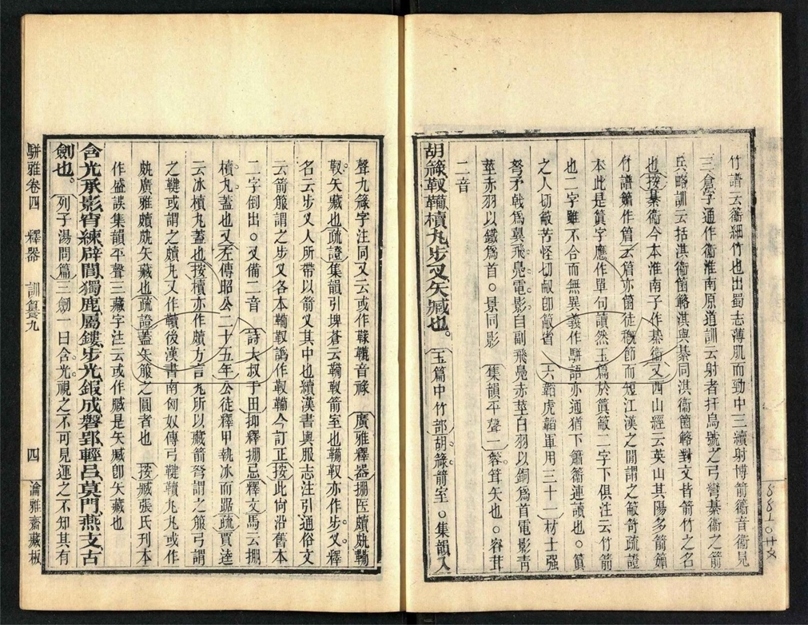 竹譜云䉁細竹也出蜀志薄肌而勁中三續射博箭䉁音衞見
三倉子通作衞淮南原道訓云射者扜烏號之弓彎棊衞之箭
兵略訓云括淇衞箘簵淇與棊同淇衞箘簵對文皆箭竹之名
也按棊衞今本淮南子作綦衞又西山經云英山其陽多箭
本此是箕字應作單句讀然玉篇於
也二字雖不合而無異義作駢語亦通猶下簫䉁連讀也。
之人切簸苦怪切簸卽簸省 六韜虎韜軍用三十一材士強
弩矛戟爲翼飛鳧電影自副飛鳧赤莖白羽以銅爲首電影靑
莖赤羽以鐵爲首。景同影 集韻平聲一 矢也。容茸
二音
胡簶靫韊櫝丸步叉矢臧也。 玉篇中竹部胡簶箭室。集韻入
聲九簶字注同又云或作韊韊音祿 廣雅釋器掤医皾
靫矢藏也疏證集韻引埤蒼云鞴靫箭室也鞴靫亦作步叉釋
名云步叉人所帶以箭叉其中也續漢書輿服志注引通俗文
云箭箙謂之步叉各本鞴靫譌作靫鞴今訂正按此向沿舊本
二字倒出。叉備二音 詩大叔于田抑釋掤忌釋文馬云掤
櫝丸蓋也又左傳昭公二十五年公徒釋甲執冰而踞疏賈逵
云冰櫝丸蓋也按櫝亦作皾方言所以藏箭弩謂之箙弓謂
之鞬或謂之皾丸又作韇後漢書南匈奴傳弓鞬韇丸丸或作
𩨒廣雅皾𩨒矢藏也疏證蓋矢箙之圓者也 按臧張氏刊本
作盛誤集韻平聲三藏字注云或作臧是矢臧卽矢藏也
含光承影宵練辟閭獨鹿屬鏤步光鍜成磬郢輕呂莫門燕支古
劍也。 列子湯問篇三劍一曰含光視之不可見運之不知其有
駢雅卷四 釋器 訓纂九 四 論雅齋藏板